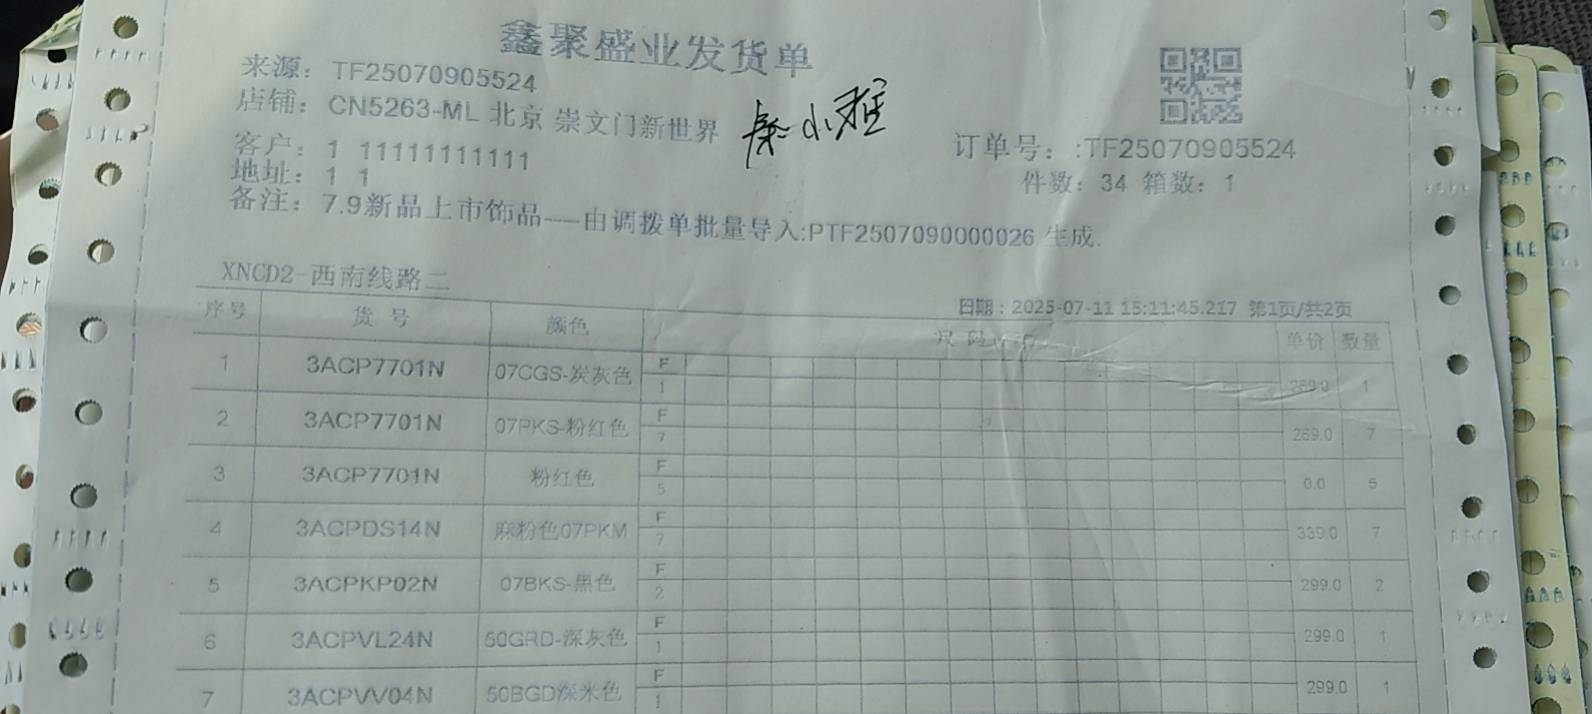 鑫聚盛业发货单
来源：TF25070905524
店铺：CN5263-ML 北京 崇文门新世界
客户：1 11111111111
订单号：:TF25070905524
地址：1 1
件数：34 箱数：1
备注：7.9新品上市饰品——由调拨单批量导入:PTF2507090000026 生成.
XNCD2-西南线路二
日期：2025-07-11 15:11:45.217 第1页/共2页
序号 货号 颜色 尺码 单价 数量
1 3ACP7701N 07CGS-炭灰色 F 1 269.0 1
2 3ACP7701N 07PKS-粉红色 F 7 269.0 7
3 3ACP7701N 粉红色 F 5 0.0 5
4 3ACPDS14N 麻粉色07PKM F 7 339.0 7
5 3ACPKP02N 07BKS-黑色 F 2 299.0 2
6 3ACPVL24N 50GRD-深灰色 F 1 299.0 1
7 3ACPVV04N 50BGD深米色 F 1 299.0 1